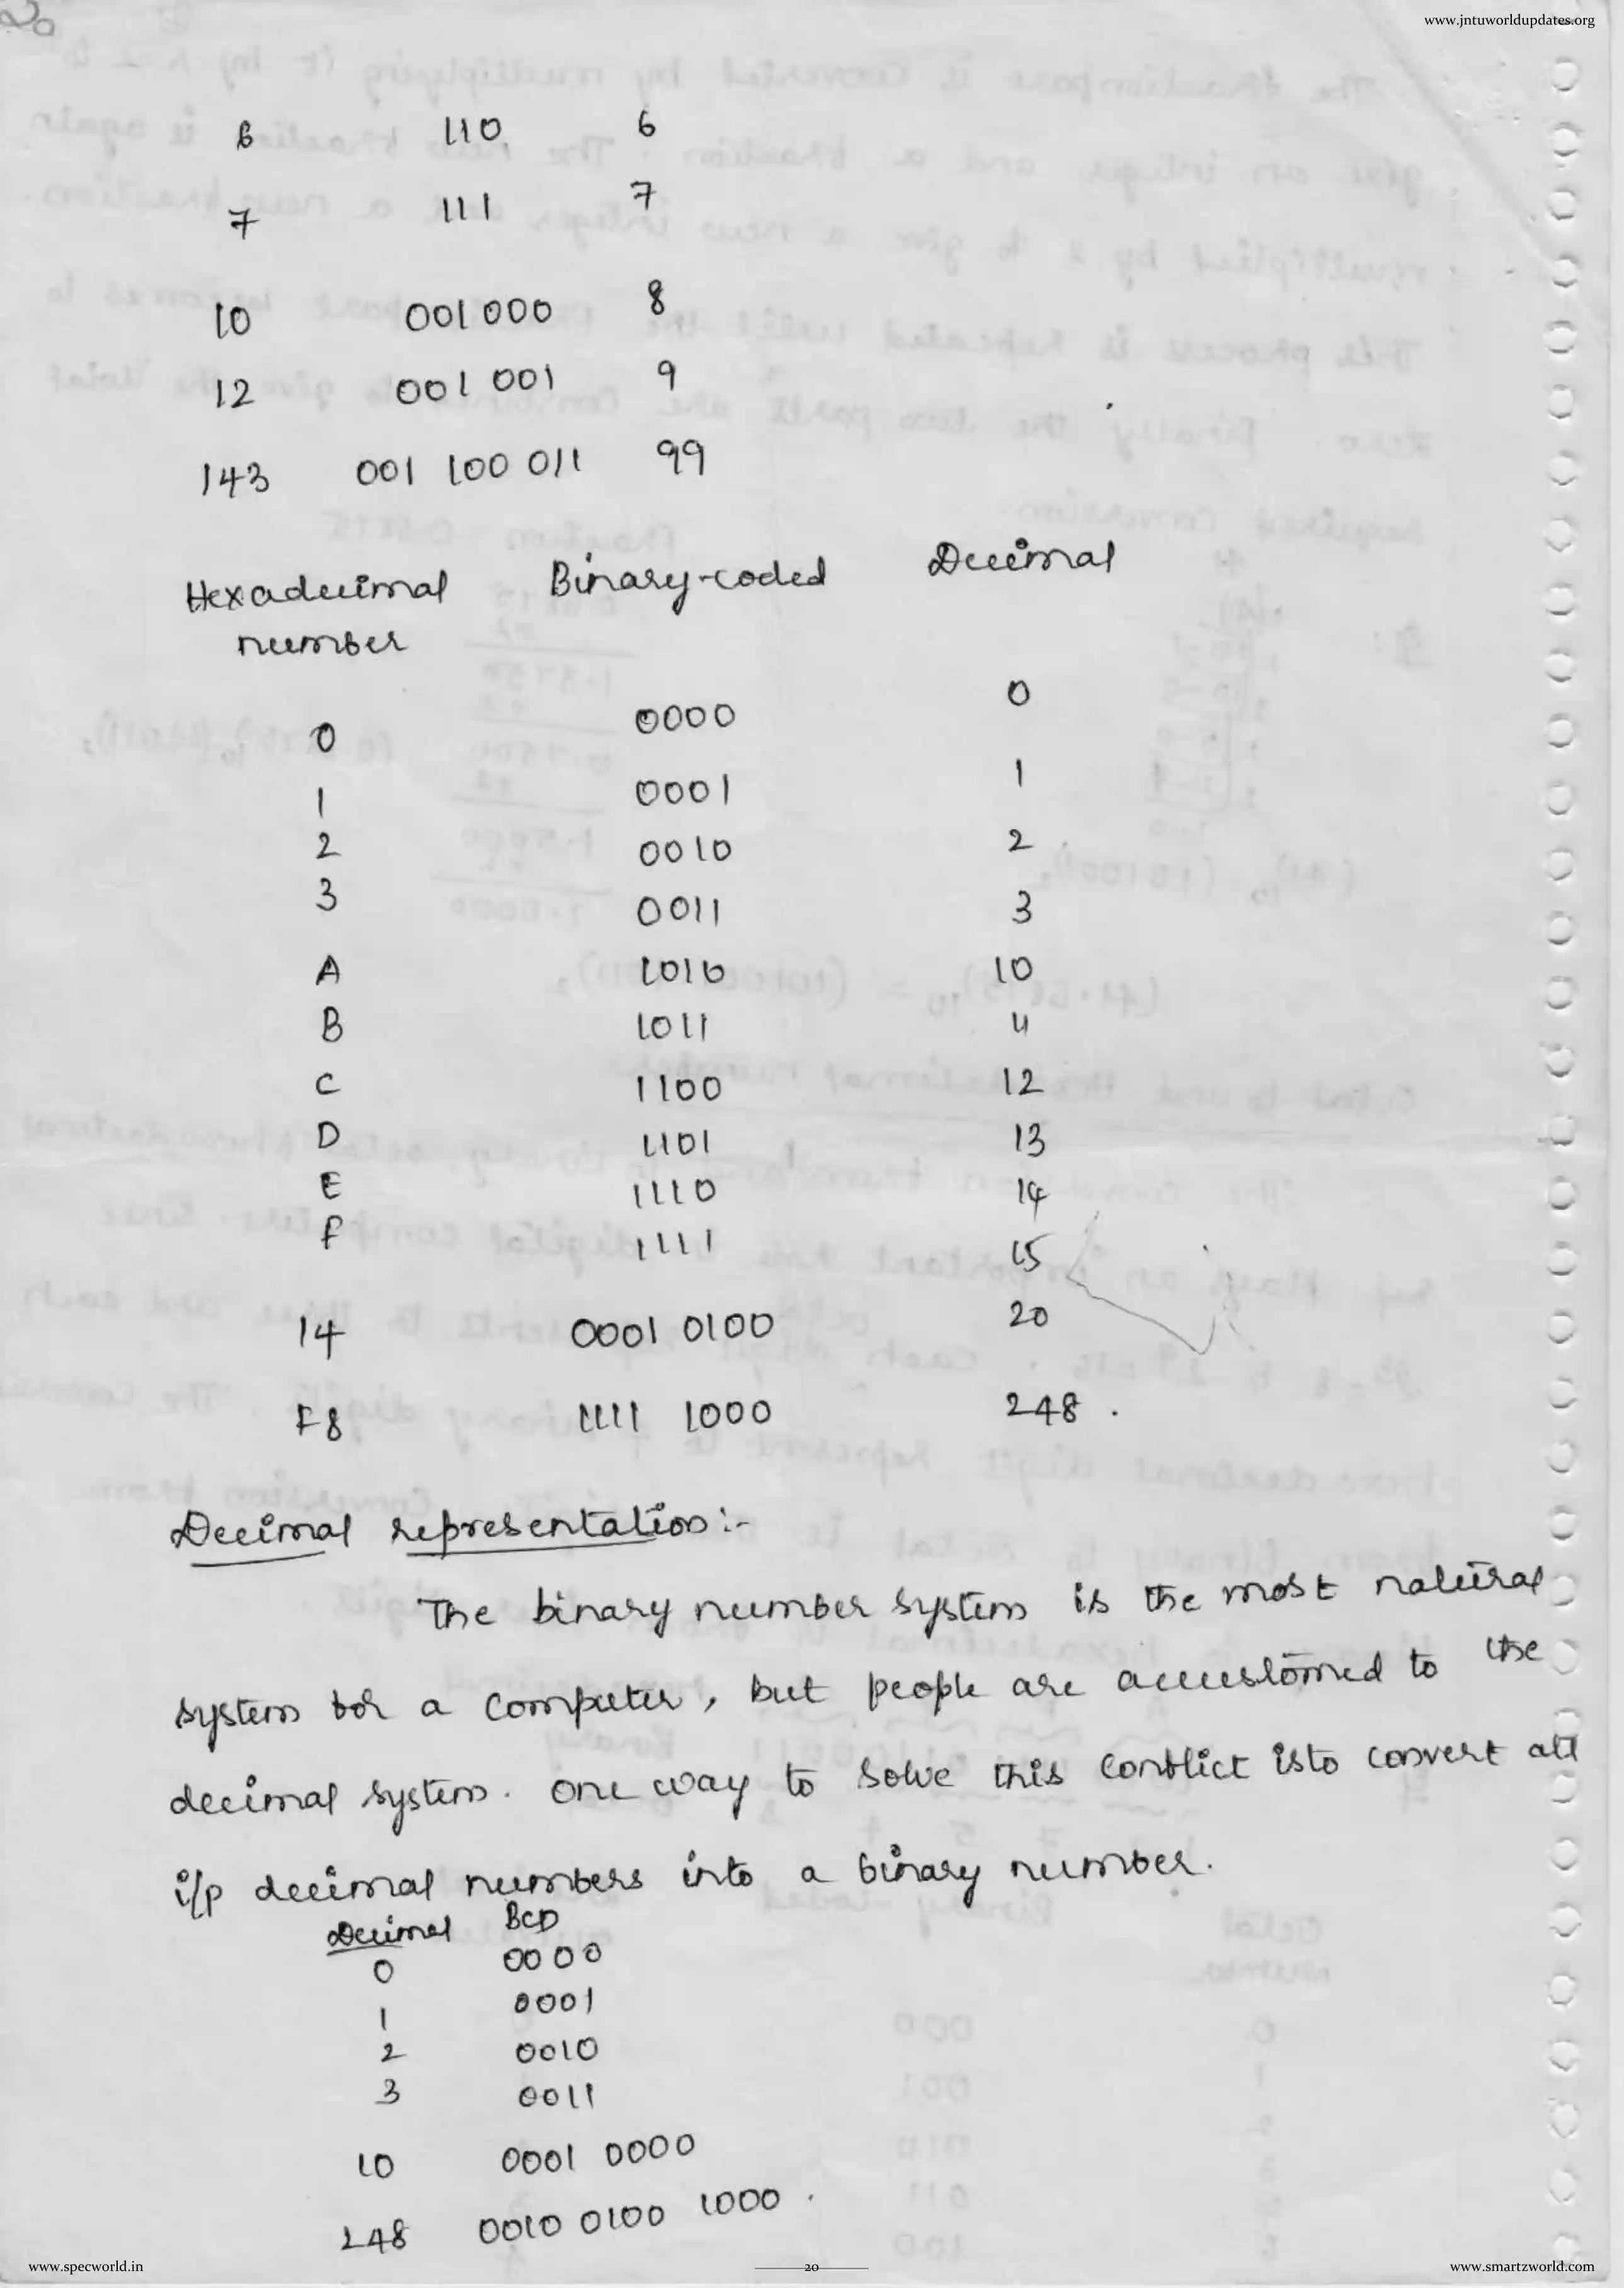 20
www.jntuworldupdates.org
6 110 6
7 111 7
10 001 000 8
12 001 001 9
143 001 100 011 99
Hexadecimal Binary-coded Decimal
number
0 0000 0
1 0001 1
2 0010 2
3 0011 3
A 1010 10
B 1011 11
C 1100 12
D 1101 13
E 1110 14
F 1111 15
14 0001 0100 20
F8 1111 1000 248 .
Decimal representation:-
The binary number system is the most natural
system for a computer, but people are accustomed to the
decimal system. One way to solve this conflict is to convert all
i/p decimal numbers into a binary number.
Decimal BCD
0 0000
1 0001
2 0010
3 0011
10 0001 0000
248 0010 0100 1000 .
www.specworld.in 20 www.smartzworld.com